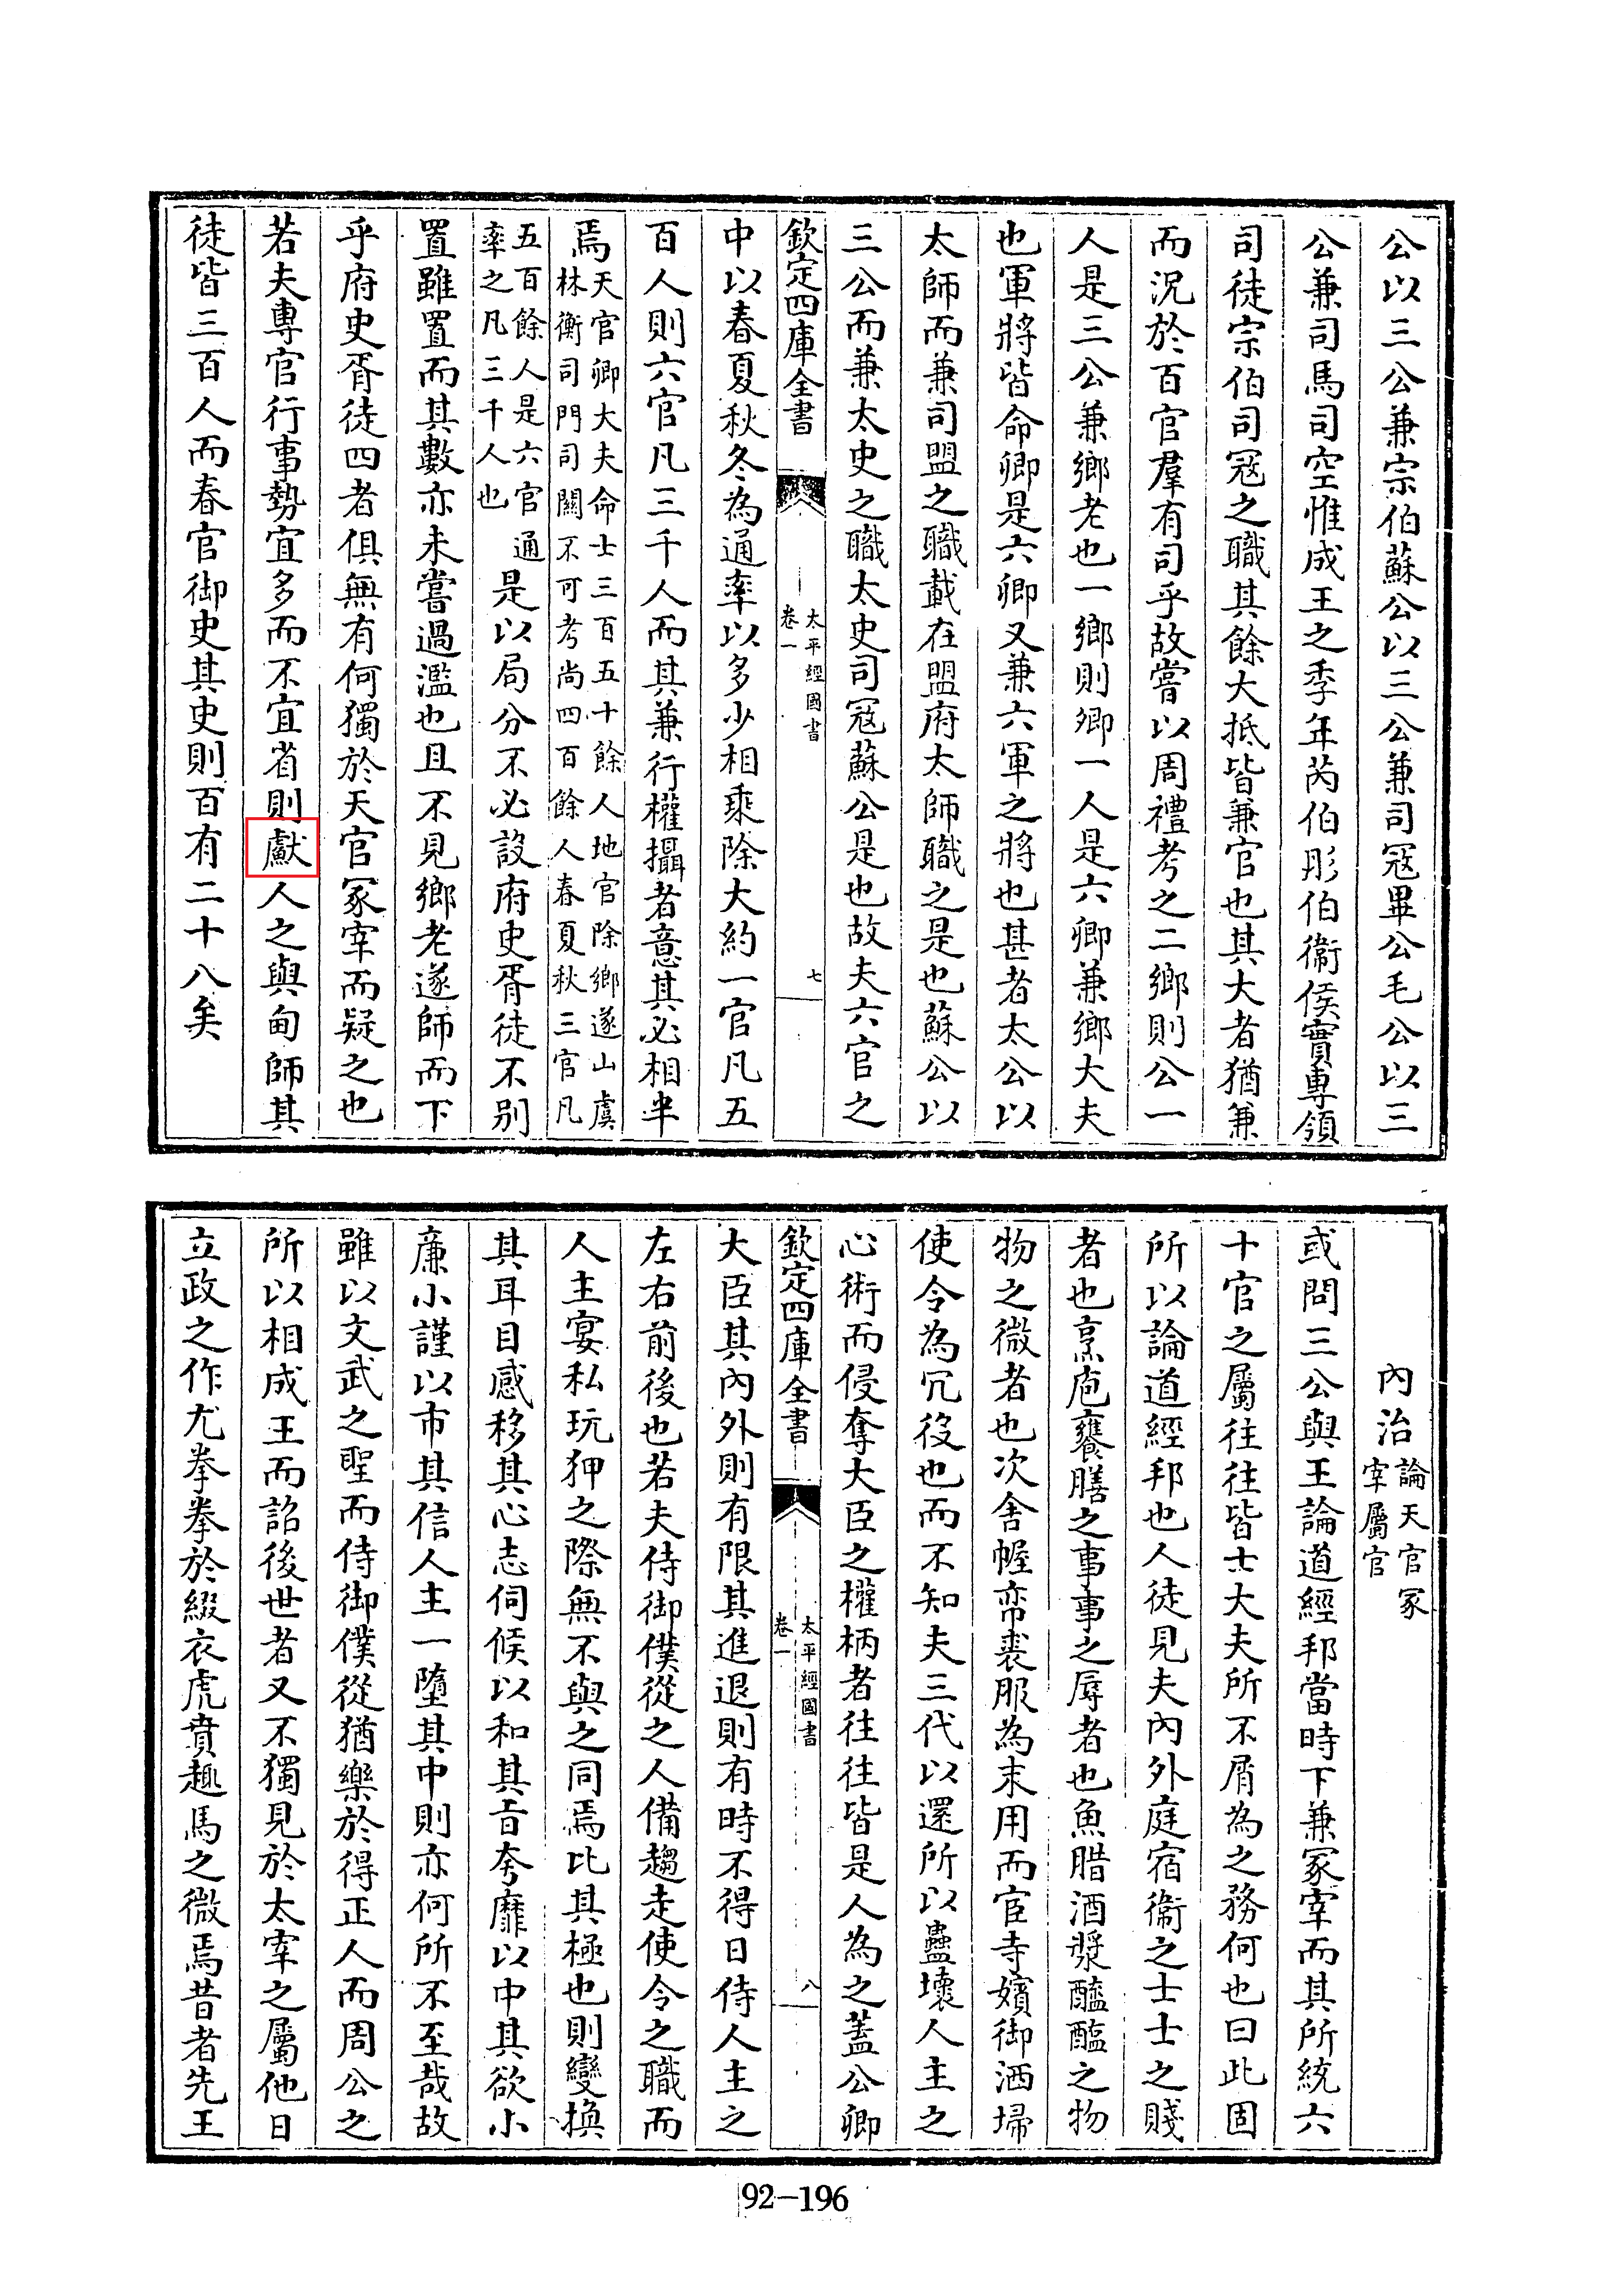 公以三公兼宗伯蘇公以三公兼司冦畢公毛公以三
公兼司馬司空惟成王之季年芮伯彤伯衛侯實專領
司徒宗伯司冦之職其餘大抵皆兼官也其大者猶兼
而況於百官羣有司乎故嘗以周禮考之二鄉則公一
人是三公兼鄉老也一鄉則卿一人是六卿兼鄉大夫
也軍將皆命卿是六卿又兼六軍之將也甚者太公以
太師而兼司盟之職載在盟府太師職之是也蘇公以
三公而兼太史之職太史司冦蘇公是也故夫六官之
欽定四庫全書
太平經國書
卷一
七
中以春夏秋冬為通率以多少相乘除大約一官凡五
百人則六官凡三千人而其兼行權攝者意其必相半
焉天官卿大夫命士三百五十餘人地官除鄉遂山虞
林衡司門司關不可考尚四百餘人春夏秋三官凡
五百餘人是六官通
率之凡三千人也
是以局分不必設府史胥徒不别
置雖置而其數亦未嘗過濫也且不見鄉老遂師而下
乎府史胥徒四者俱無有何獨於天官冢宰而疑之也
若夫專官行事勢宜多而不宜省則獻人之與甸師其
徒皆三百人而春官御史其史則百有二十八矣
內治論天官冢
宰屬官
或問三公與王論道經邦當時下兼冢宰而其所統六
十官之屬往往皆士大夫所不屑為之務何也曰此固
所以論道經邦也人徒見夫內外庭宿衞之士士之賤
者也烹庖饔膳之事事之辱者也魚腊酒漿醯醢之物
物之微者也次舍幄帟裘服為末用而宦寺嬪御洒埽
使令為冗役也而不知夫三代以還所以蠱壞人主之
心術而侵奪大臣之權柄者往往皆是人為之蓋公卿
欽定四庫全書
太平經國書
卷一
八
大臣其內外則有限其進退則有時不得日侍人主之
左右前後也若夫侍御僕從之人備趨走使令之職而
人主宴私玩狎之際無不與之同焉比其極也則變換
其耳目惑移其心志伺候以和其旨夸靡以中其欲小
廉小謹以市其信人主一墮其中則亦何所不至哉故
雖以文武之聖而侍御僕從猶樂於得正人而周公之
所以相成王而詔後世者又不獨見於太宰之屬他日
立政之作尤拳拳於綴衣虎賁趣馬之微焉昔者先王
92-196